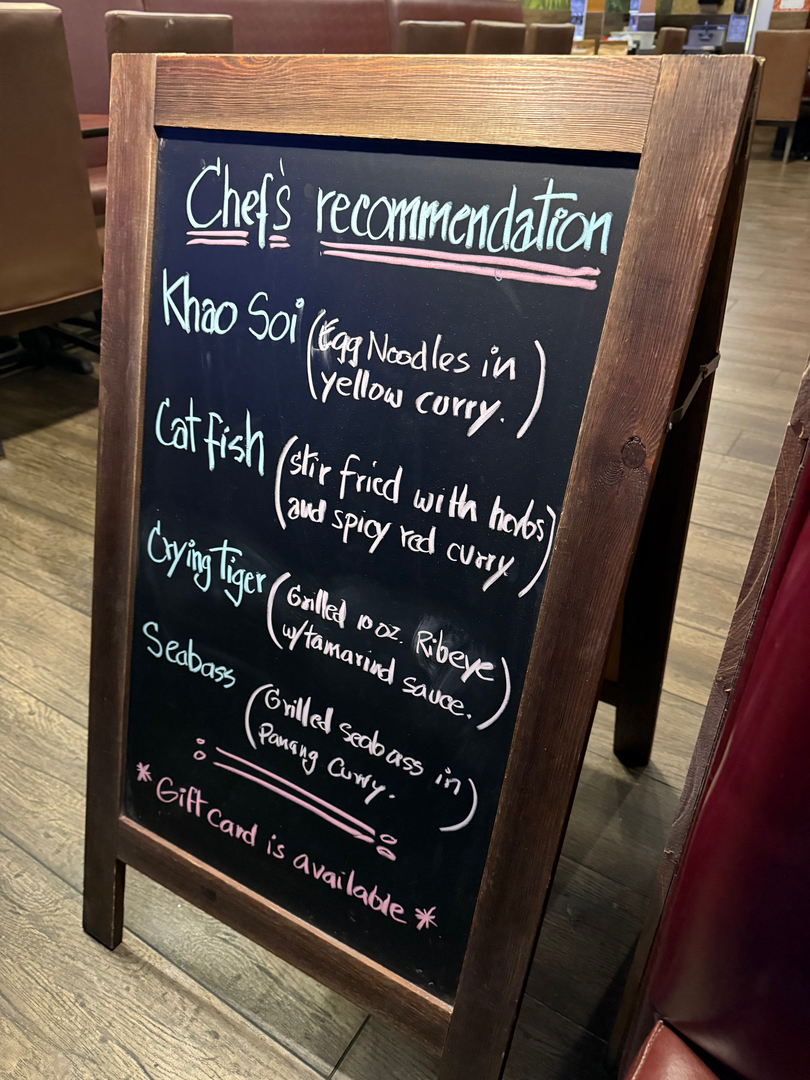 Chef's recommendation
Khao Soi (Egg Noodles in
yellow curry.)
Cat fish (stir fried with herbs
and spicy red curry)
Crying Tiger (Grilled 10 oz. Ribeye
w/tamarind sauce.)
Seabass (Grilled Seabass in
Panang Curry.)
* Gift Card is available *